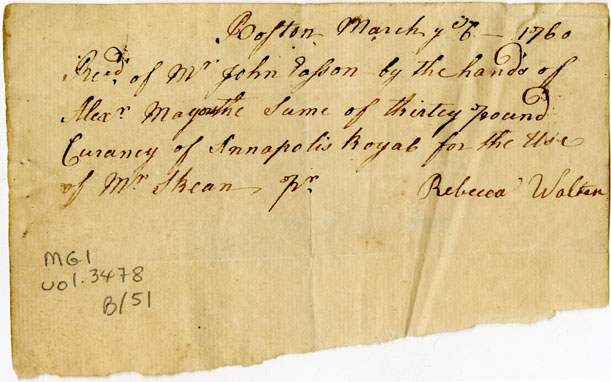 Boston March ye 6 — 1760
Rec'd of Mr John Easson by the hands of
Alexr Magra the Sume of thirtey pound
Curancy of Annapolis Royal for the Use
of Mr Skean pr. Rebecca Walten
MG1
vol. 3478
B/51